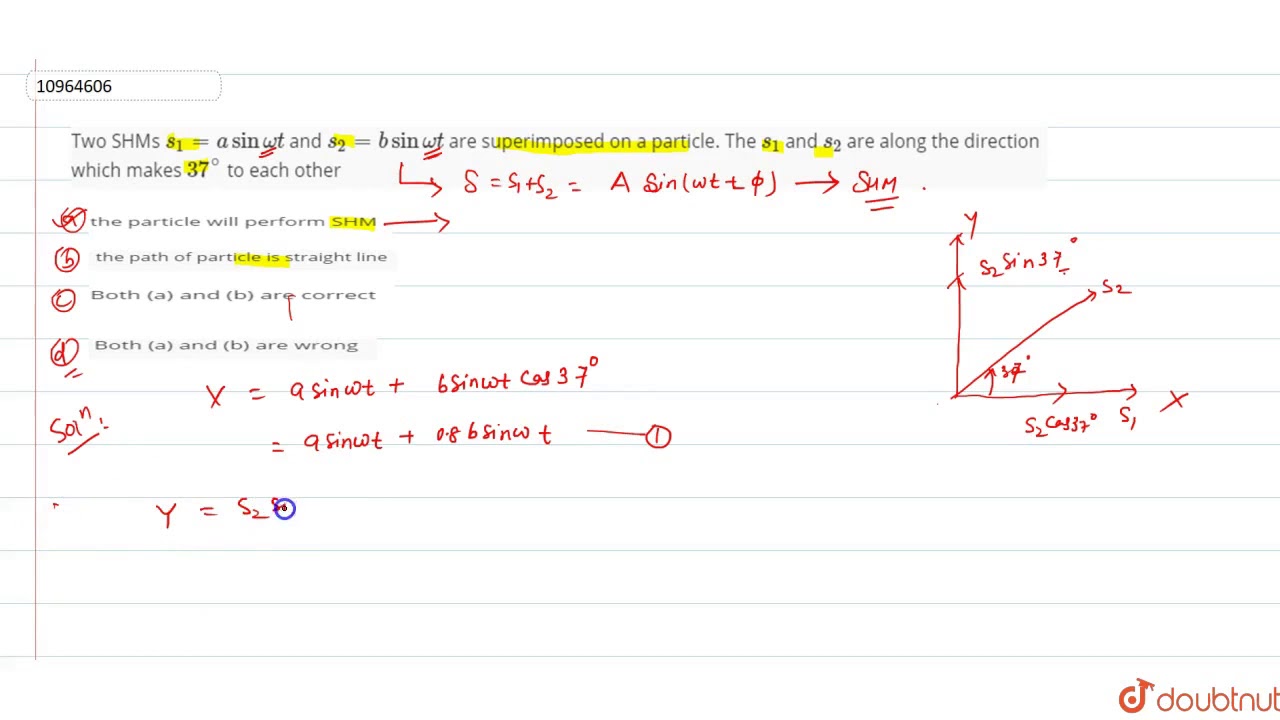 10964606
Two SHMs s₁ = a sin ωt and s₂ = b sin ωt are superimposed on a particle. The s₁ and s₂ are along the direction
which makes 37° to each other
S = S₁+S₂ = A sin(ωt + φ) → SHM .
(a) the particle will perform SHM →
(b) the path of particle is straight line
(c) Both (a) and (b) are correct
(d) Both (a) and (b) are wrong
Y
S₂ sin37°
S₂
37°
S₂ cos37°
S₁
X
X = a sin ωt + b sin ωt cos 37°
Solⁿ:
= a sin ωt + 0.8 b sin ω t —— ①
Y = S₂ s
doubtnut